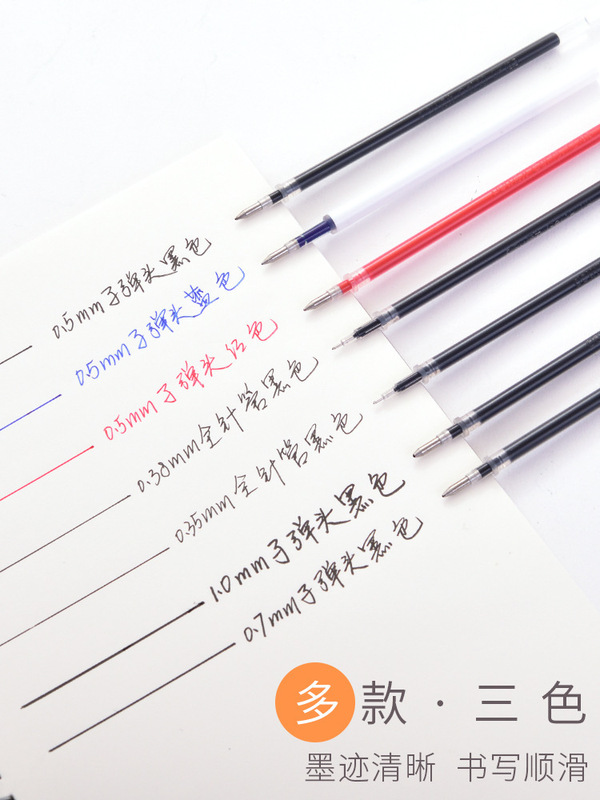 0.5mm子弹头黑色
0.5mm子弹头蓝色
0.5mm子弹头红色
0.38mm全针管黑色
0.35mm全针管黑色
1.0mm子弹头黑色
0.7mm子弹头黑色
多款·三色
墨迹清晰 书写顺滑